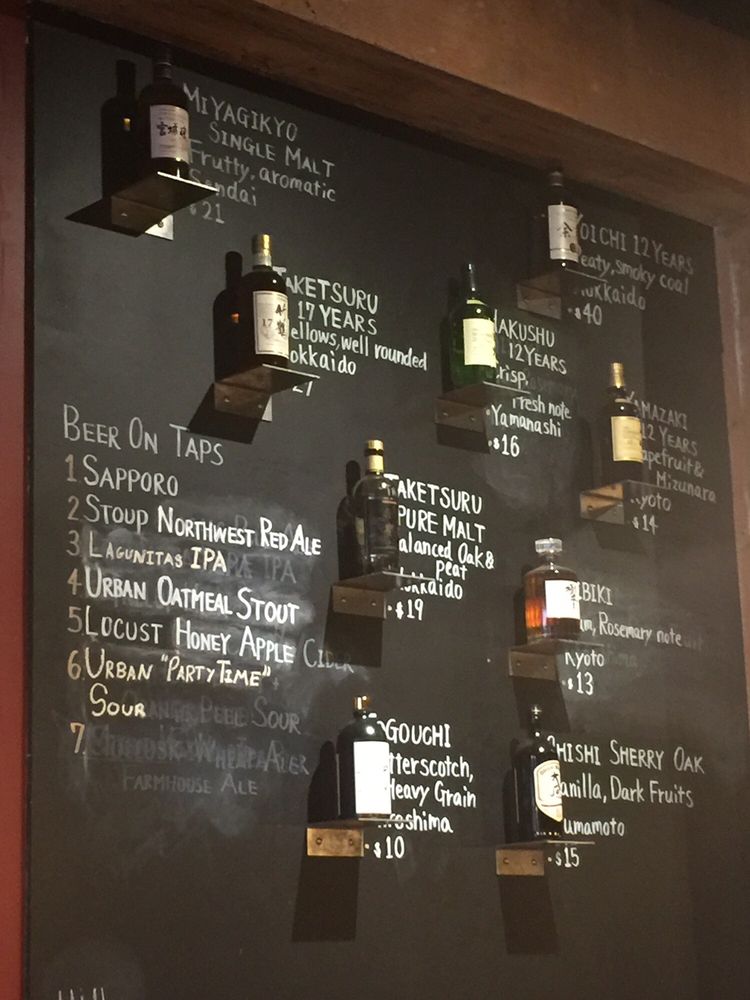 MIYAGIKYO
SINGLE MALT
Frutty, aromatic
Sendai
$21
OICHI 12 YEARS
eaty, smoky coal
okkaido
$40
TAKETSURU
17 YEARS
ellows, well rounded
okkaido
27
HAKUSHU
12 YEARS
risp,
Fresh note
Yamanashi
$16
YAMAZAKI
12 YEARS
apefruit &
Mizunara
Kyoto
$14
BEER ON TAPS
1 SAPPORO
2 STOUP NORTHWEST RED ALE
3 LAGUNITAS IPA
4 URBAN OATMEAL STOUT
5 LOCUST HONEY APPLE CIDER
6 URBAN "PARTY TIME"
SOUR
7
FARMHOUSE ALE
TAKETSURU
PURE MALT
alanced Oak &
Peat
Hokkaido
$19
IBIKI
Rosemary note
Kyoto
$13
OGOUCHI
tterscotch,
Heavy Grain
iroshima
$10
HISHI SHERRY OAK
anilla, Dark Fruits
umamoto
$15